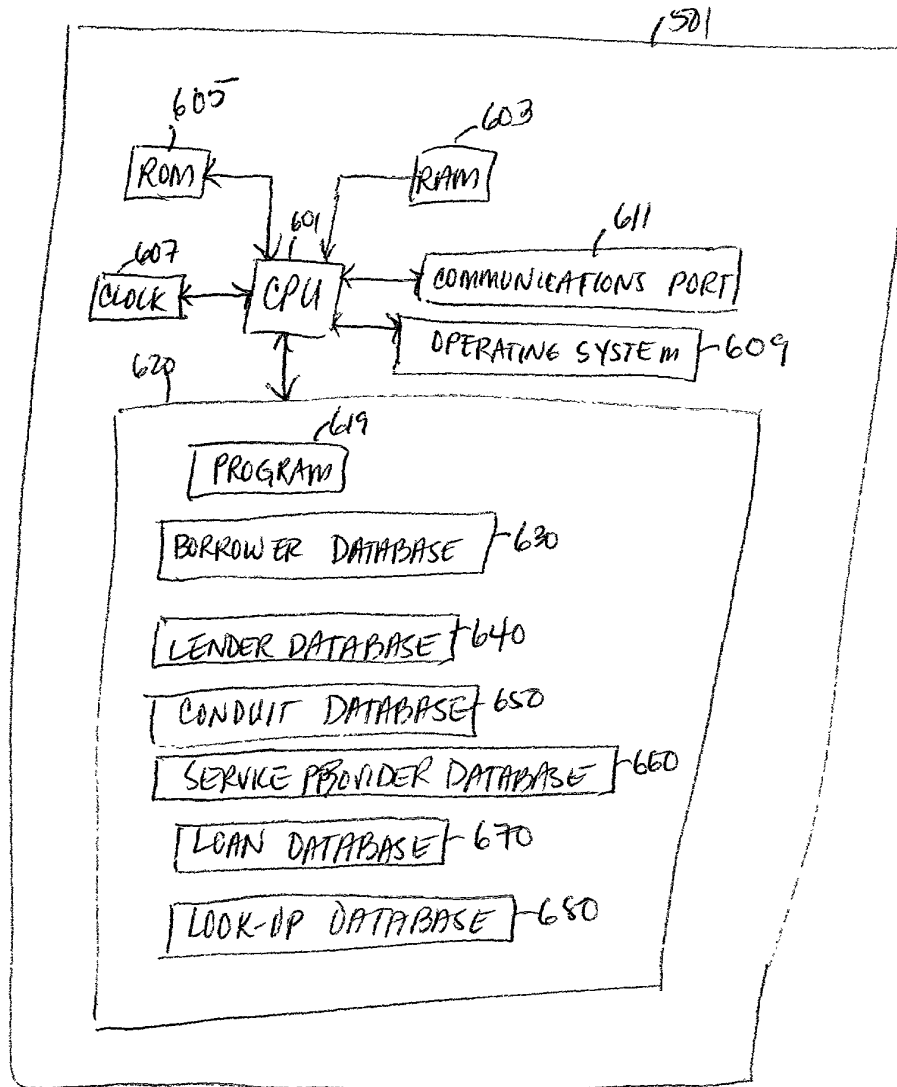 501
605
603
ROM
RAM
611
607
601
CLOCK
CPU
COMMUNICATIONS PORT
OPERATING SYSTEM
609
620
619
PROGRAM
BORROWER DATABASE
630
LENDER DATABASE
640
CONDUIT DATABASE
650
SERVICE PROVIDER DATABASE
660
LOAN DATABASE
670
LOOK-UP DATABASE
680